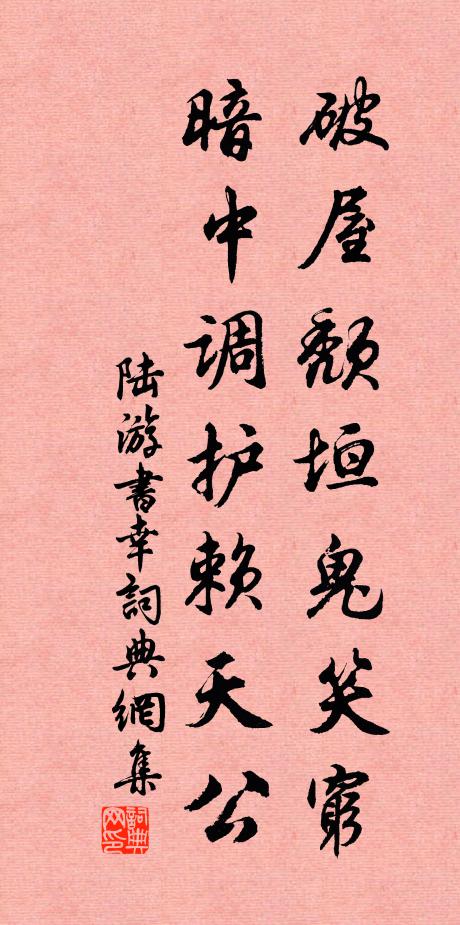 破屋颓垣鬼笑穷
暗中调护赖天公
陆游書幸詞典網集
詞典网印